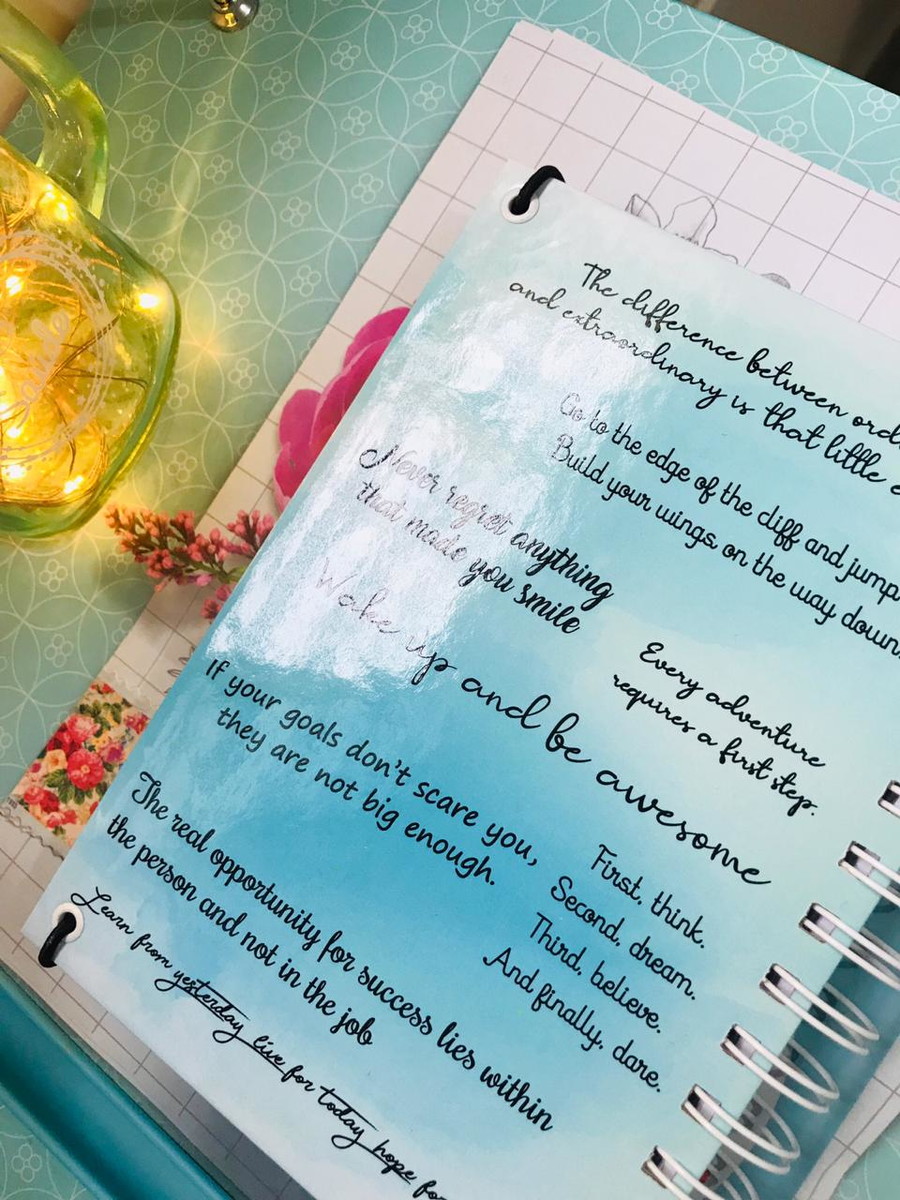 The difference between ord
and extraordinary is that little e
Go to the edge of the diff and jump.
Build your wings on the way down.
Never regret anything
that made you smile
Wake up and be awesome
Every adventure
requires a first step.
If your goals don't scare you,
they are not big enough.
First, think.
Second, dream.
Third, believe.
And finally, dare.
The real opportunity for success lies within
the person and not in the job
Learn from yesterday live for today hope for